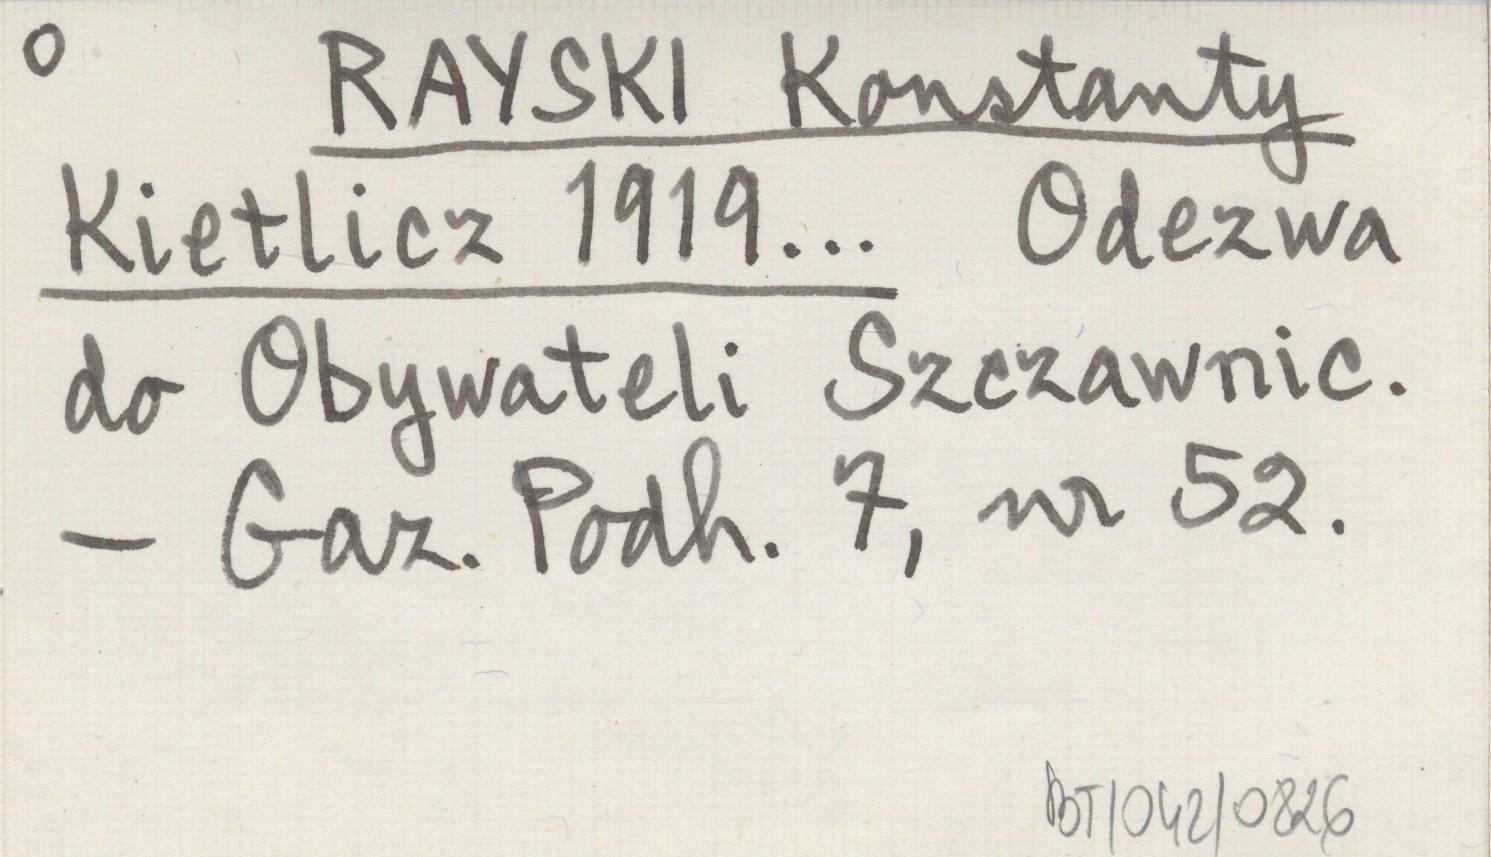 o
RAYSKI Konstanty
Kietlicz 1919... Odezwa
do Obywateli Szczawnic.
— Gaz. Podh. 7, nr 52.
BT/042/0826